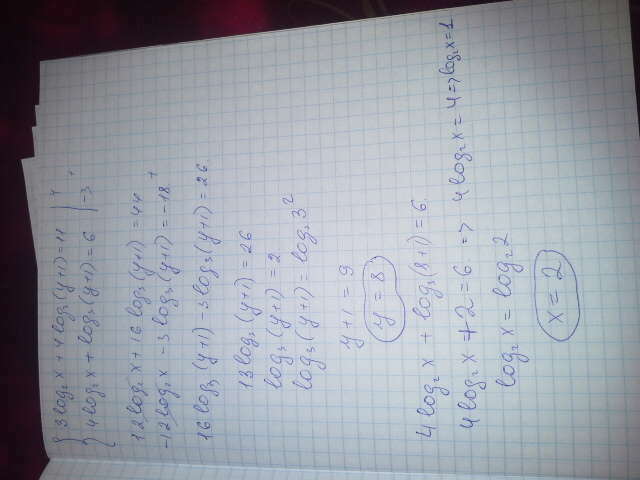 { 3log₂x + 4log₃(y+1) = 11 | 4
4log₂x + log₃(y+1) = 6 | -3 +
12log₂x + 16log₃(y+1) = 44
-12log₂x - 3log₃(y+1) = -18 +
16log₃(y+1) - 3log₃(y+1) = 26
13log₃(y+1) = 26
log₃(y+1) = 2
log₃(y+1) = log₃3²
y+1 = 9
y = 8
4log₂x + log₃(8+1) = 6.
4log₂x + 2 = 6. => 4log₂x = 4 => log₂x = 1
log₂x = log₂2
x = 2